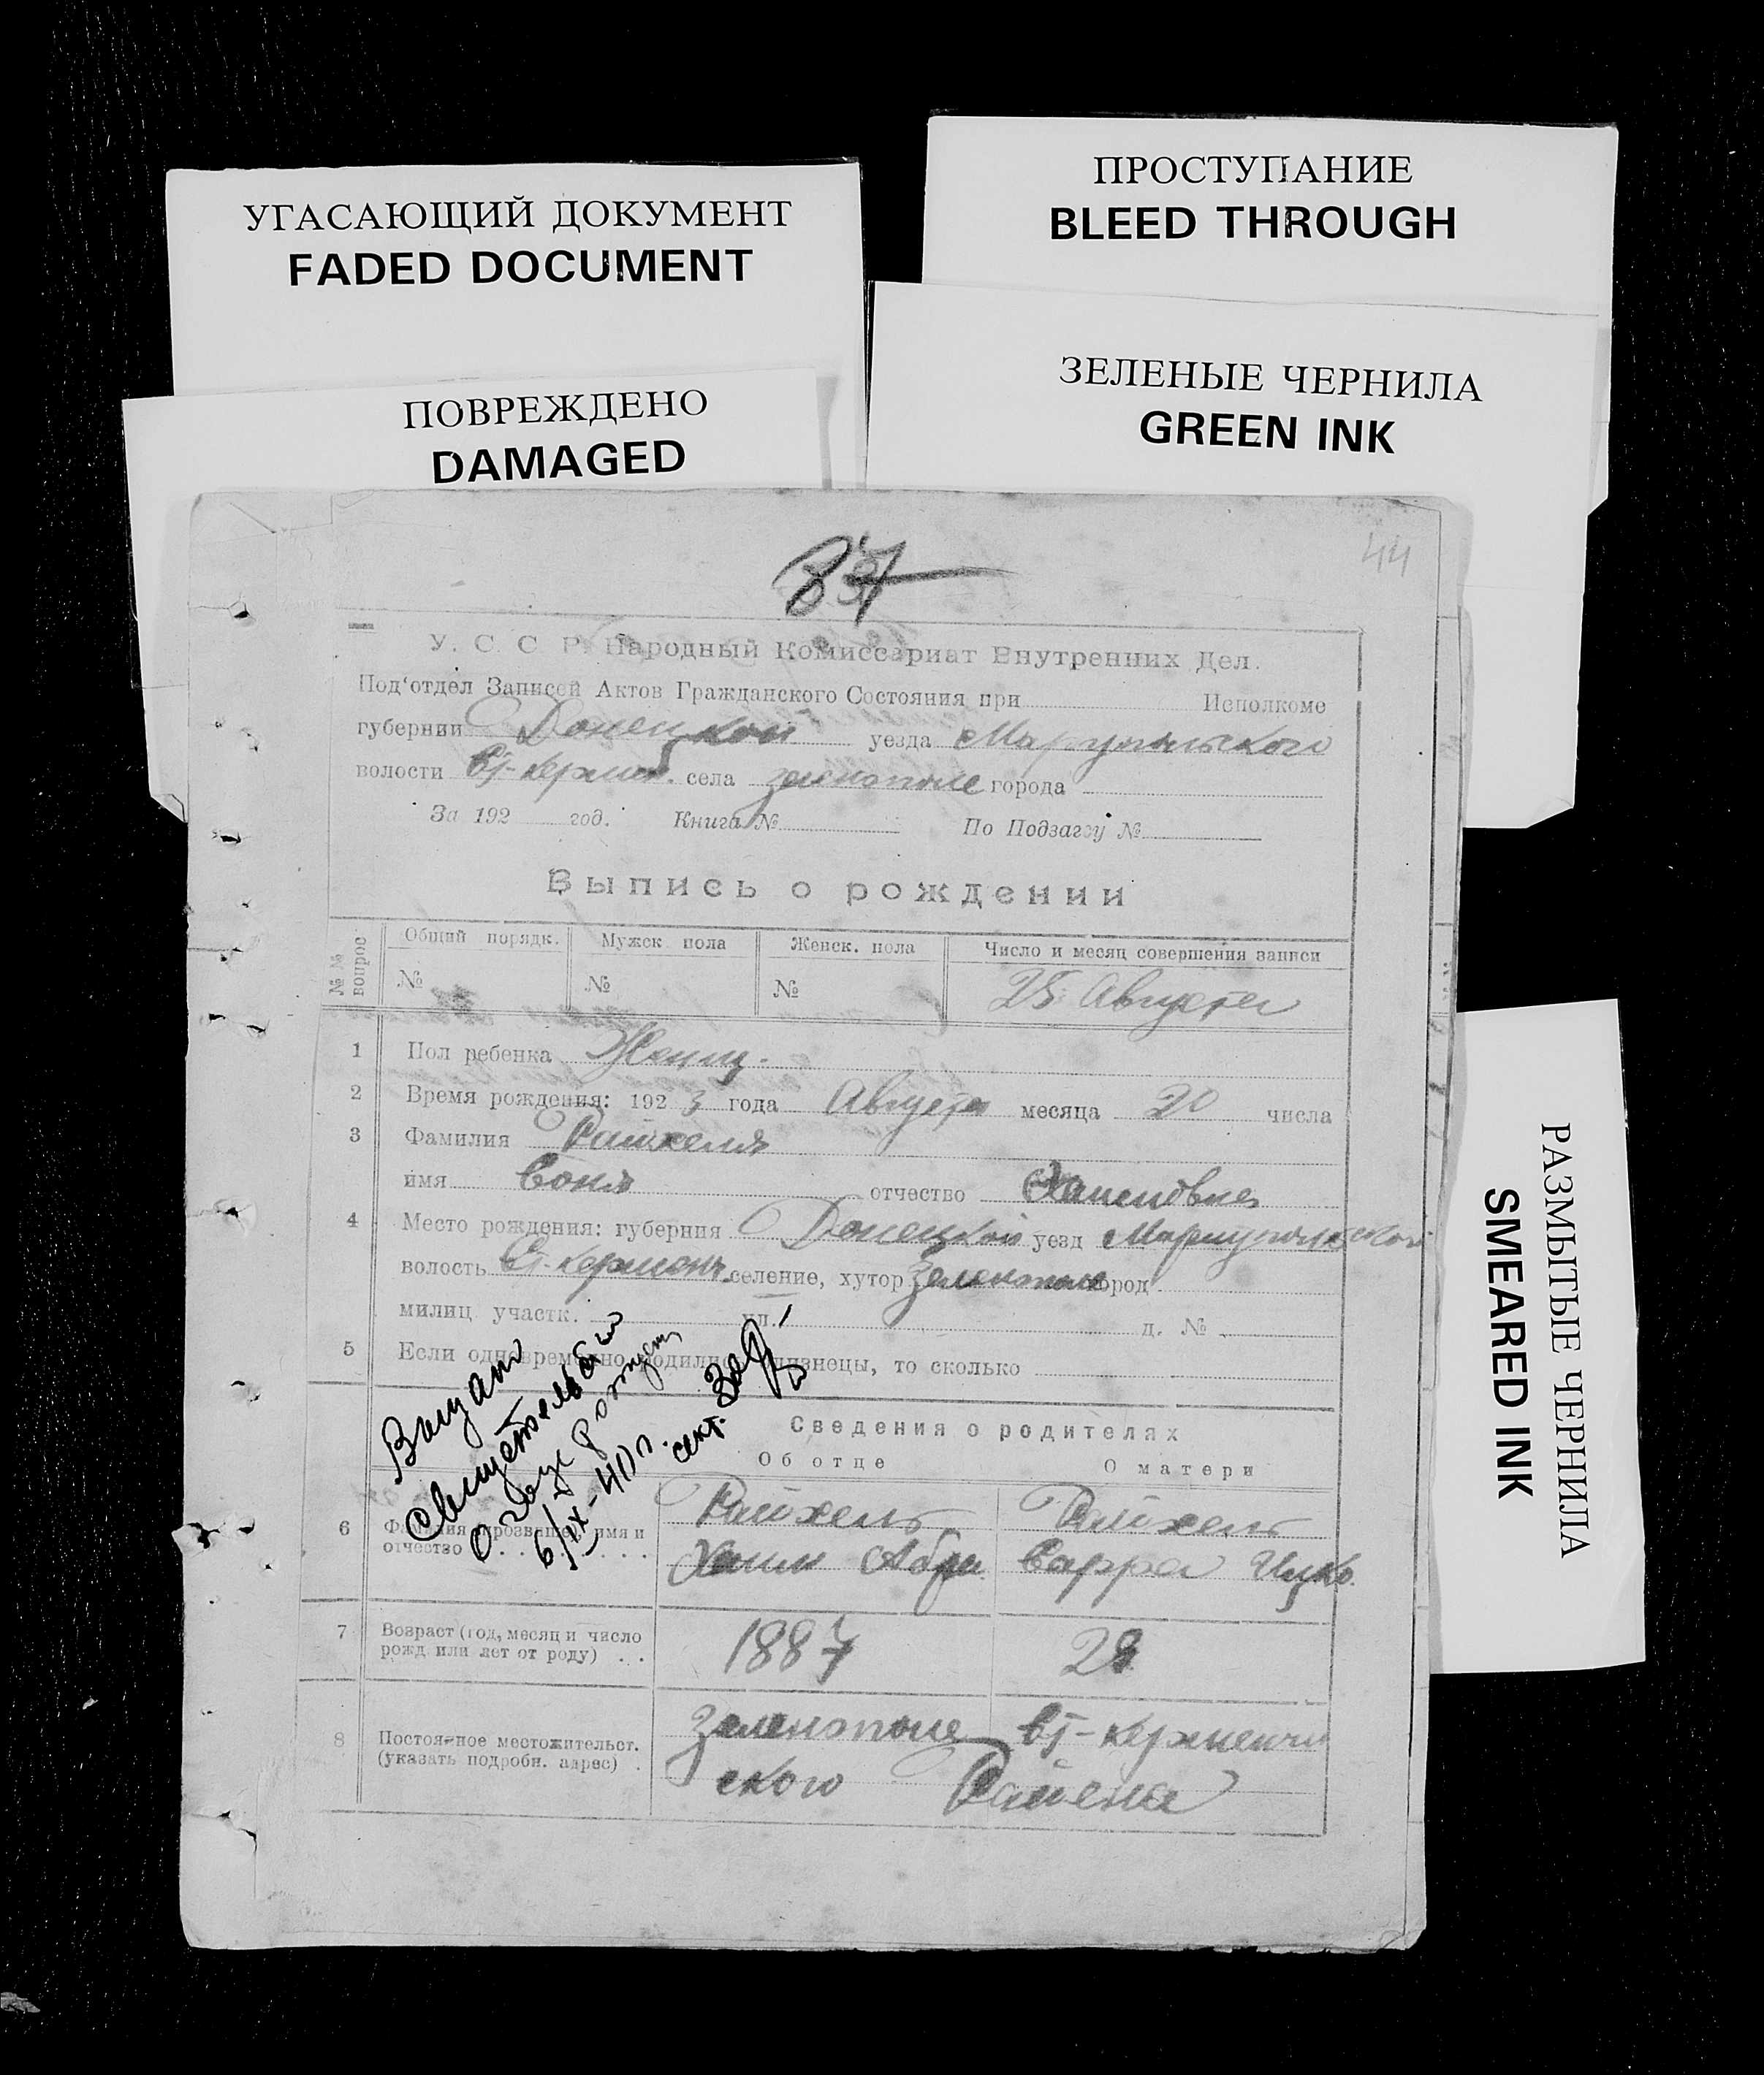 УГАСАЮЩИЙ ДОКУМЕНТ
FADED DOCUMENT
ПРОСТУПАНИЕ
BLEED THROUGH
ЗЕЛЕНЫЕ ЧЕРНИЛА
GREEN INK
ПОВРЕЖДЕНО
DAMAGED
44
У. С. С. Р. Народный Комиссариат Внутренних Дел.
Под'отдел Записей Актов Гражданского Состояния при Исполкоме
губернии Донецкой уезда Мариупольского
волости Ст-Кермен. села Зеленополе города
За 192 год. Книга № По Подзагсу №
Выпись о рождении
№№ вопрос
Общий порядк. Мужск. пола Женск. пола Число и месяц совершения записи
№ № № 25 Августа
1 Пол ребенка Женщ.
2 Время рождения: 1923 года Августа месяца 20 числа
3 Фамилия Райхель
имя Соня отчество Хаимовна
4 Место рождения: губерния Донецкой уезд Мариупольской
волость Ст. Керменч. селение, хутор Зеленополе город
милиц. участк. ул. д. №
5 Если одновременно родились близнецы, то сколько
Выдано
свидетельство
о
6/IX-40 г.
Сведения о родителях
Об отце О матери
6 Фамилия, прозвище, имя и отчество Райхель Райхель
Хаим Абра Сарра Ицко.
7 Возраст (год, месяц и число рожд. или лет от роду) 1887 28
8 Постоянное местожительст. (указать подробн. адрес) Зеленополе Ст-Керменчи
ского Района
РАЗМЫТЫЕ ЧЕРНИЛА
SMEARED INK